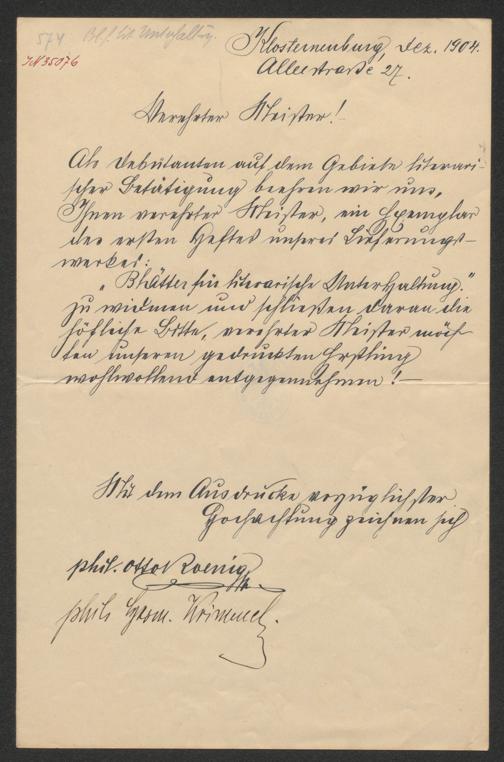 574 Bl. f. lit. Unterhaltung.
IN 35076
Klosterneuburg, Dez. 1904.
Alleestraße 27.
Verehrter Meister!
Als Debutanten auf dem Gebiete literari-
scher Betätigung beehren wir uns,
Ihnen verehrter Meister, ein Exemplar
des ersten Heftes unseres Lieferungs-
werkes:
„Blätter für literarische Unterhaltung."
zu widmen und schließen daran die
höfliche Bitte, verehrter Meister möch-
ten unseren gedruckten Erstling
wohlwollend entgegennehmen! —
Mit dem Ausdrucke vorzüglichster
Hochachtung zeichnen sich
phil. Otto Koenig
phil. Krimmel.